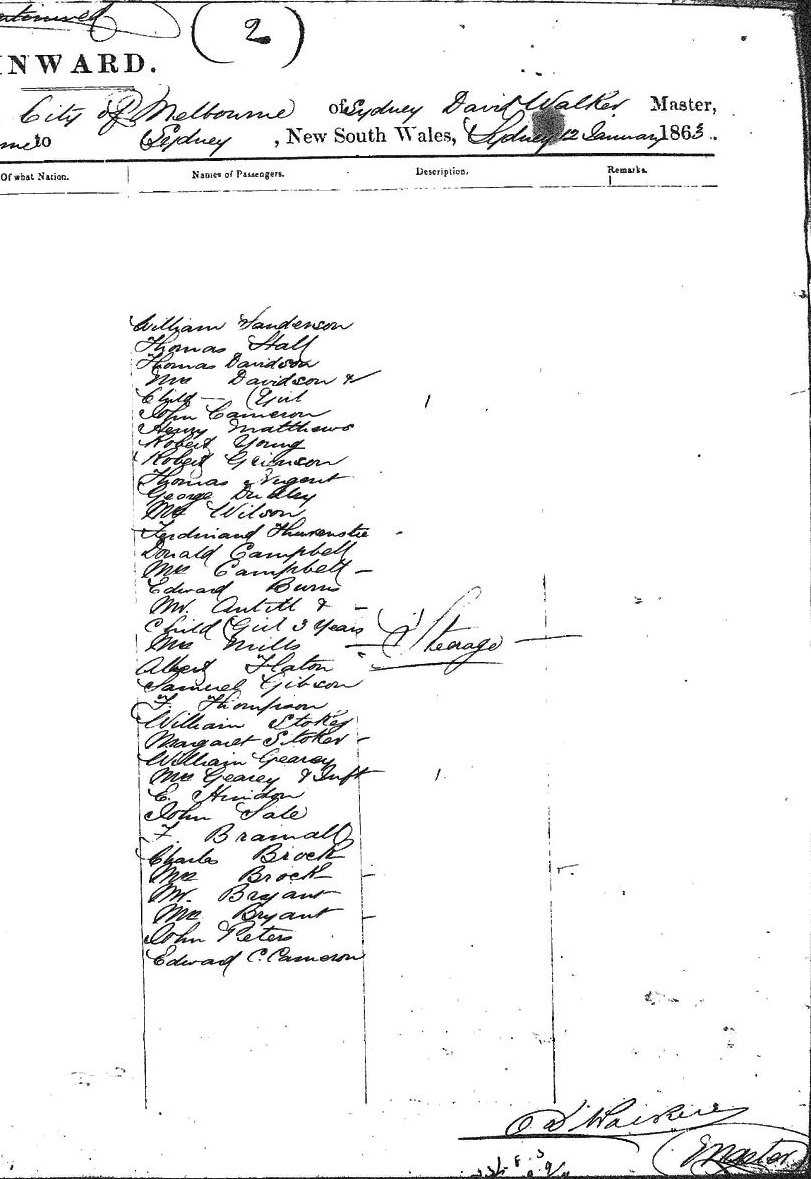 (2)
INWARD.
City of Melbourne of Sydney David Walker Master,
to Sydney, New South Wales, Sydney 12 January 1863.
Of what Nation. Names of Passengers. Description. Remarks.
William Sanderson
Thomas Hall
Thomas Davidson
Mrs Davidson &
Child Girl
John Cameron
Henry Matthews
Robert Young
Robert Grierson
Thomas Nugent
George Dudley
Mr Wilson
Ferdinand
Donald Campbell
Mrs Campbell -
Edward Burns
Mr. Antill & -
Child Girl 3 Years
Mrs Mills — Steerage —
Albert
Samuel Gibson
F. Thompson
William Stokes
Margaret Stokes -
William Gearey
Mrs Gearey & Inft
E. Hindon
John Sale
F Bramall
Charles Brock
Mrs Brock -
Mr. Bryant
Mrs Bryant -
John Peters
Edward C. Cameron
D Walker
Master